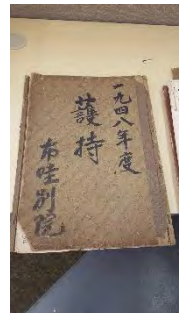 一九四八年度
護持
布哇別院